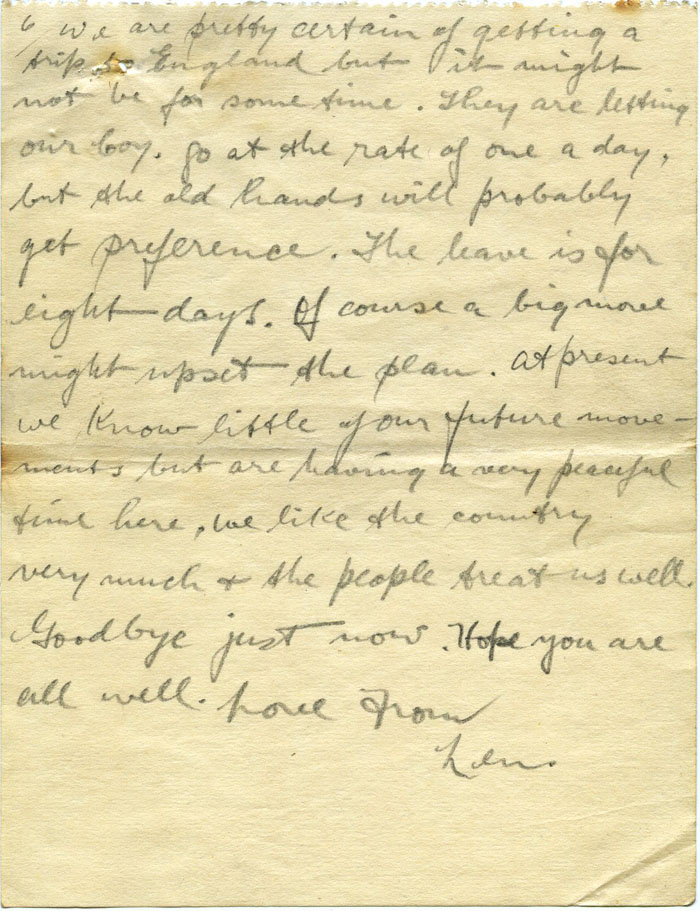 6/ we are pretty certain of getting a
trip to England but it might
not be for some time. They are letting
our boys go at the rate of one a day,
but the old hands will probably
get preference. The leave is for
eight days. Of course a big move
might upset the plan. At present
we know little of our future move-
ments but are having a very peaceful
time here, we like the country
very much & the people treat us well.
Goodbye just now. Hope you are
all well. Love from
Len.